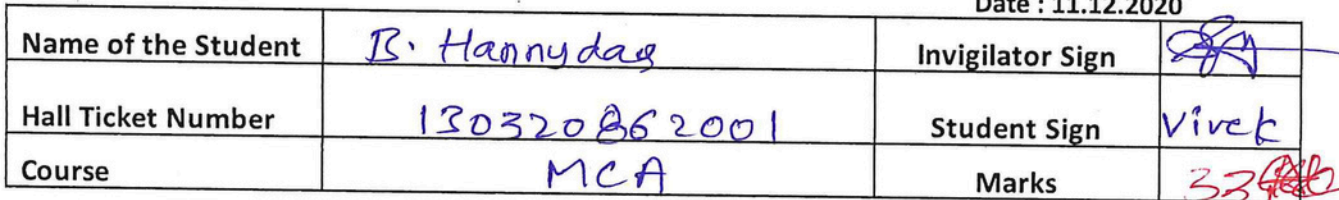 Date : 11.12.2020
Name of the Student B. Hannydas Invigilator Sign
Hall Ticket Number 130320862001 Student Sign Vivek
Course MCA Marks 33